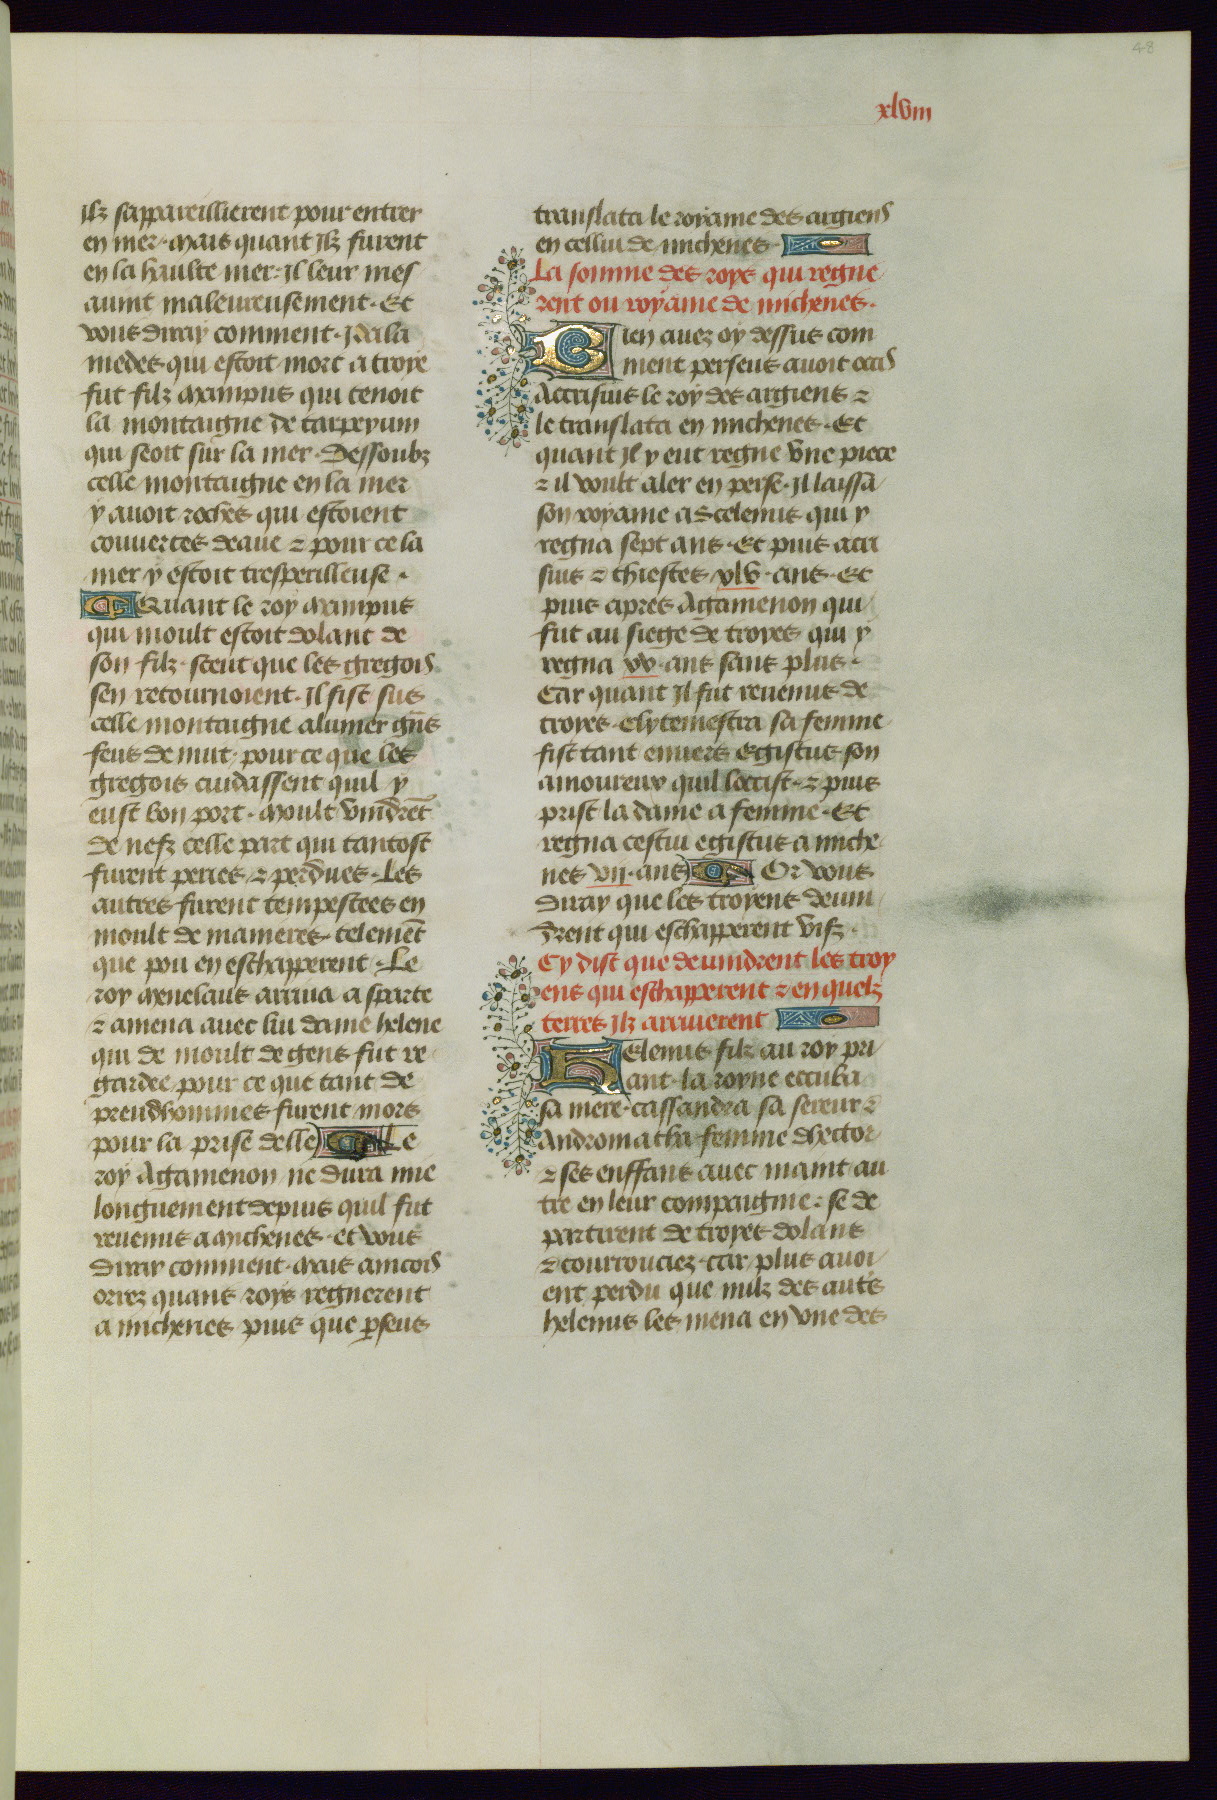 48
xlviii
ilz sappareillierent pour entrer
en mer. Mais quant ilz furent
en la haulte mer. il leur mes
auint maleureusement. Et
vous diray comment. Pala
medes qui estoit mort a troye
fut filz Nampus qui tenoit
la montaigne de tarpeyum
qui seoit sur la mer. Dessoubz
celle montaigne en la mer
y auoit roches qui estoient
couuertes deaue ⁊ pour ce la
mer y estoit tresperilleuse.
Quant le roy Nampus
qui moult estoit dolant de
son filz. sceut que les gregois
sen retournoient. il fist sus
celle montaigne alumer grns
feus de nuit. pour ce que les
gregois cuidassent quil y
eust bon port. Moult vindrēt
de nefz celle part qui tantost
furent peries ⁊ perdues. Les
autres furent tempestees en
moult de manieres. telemēt
que pou en eschapperent. Le
roy Menelaus arriua a sparte
⁊ amena auec lui dame helene
qui de moult de gens fut re
gardee pour ce que tant de
preudhommes furent mors
pour la prise delle Le
roy Agamenon ne dura mie
longuement depuis quil fut
reuenus a michenes. et vous
diray comment. Mais aincois
orrez quans roys regnerent
a michenes puis que pseus
translata le royame des argiens
en cellui de michenes.
La somme des roys qui regne
rent ou royame de michenes.
Bien auez oy dessus com
ment perseus auoit occis
Accrisius le roy des argiens ⁊
le translata en michenes. Et
quant il y eut regne vne piece
⁊ il voult aler en perse. il laissa
son royame a Scelenus qui y
regna sept ans. Et puis acri
sius ⁊ thiestes xlv. ans. Et
puis apres Agamenon qui
fut au siege de troyes qui y
regna xv. ans sans plus.
Car quant il fut reuenus de
troyes. Clytemestra sa femme
fist tant enuers egistus son
amoureux quil loccist. ⁊ puis
prist la dame a femme. Et
regna cestui egistus a miche
nes vii. ans Or vous
diray que les troyens deuin
drent qui eschapperent vifz.
Cy dist que deuindrent les troy
ens qui eschapperent ⁊ en quelz
terres ilz arriuerent
Helenus filz au roy pri
ant. la royne eccuba
sa mere. cassandra sa sereur ⁊
Andromatha femme dhector
⁊ ses enffans auec maint au
tre en leur compaignie. se de
partirent de troyes dolans
⁊ courrouciez. car plus auoi
ent perdu que nulz des aut̄s
helenus les mena en vne des